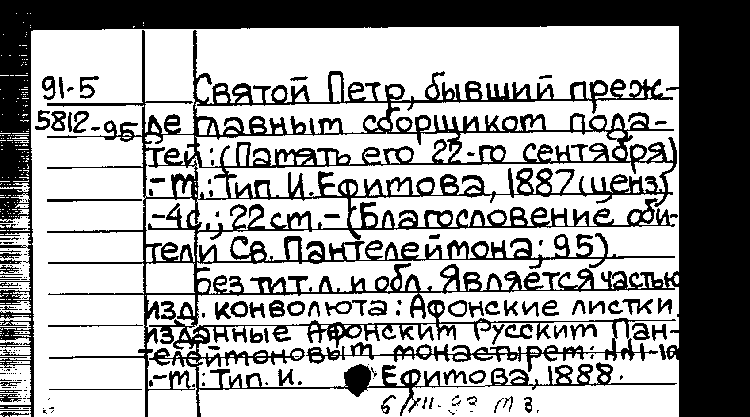 91-5 Святой Петр, бывший преж-
5812-95 де главным сборщиком пода-
тей: (Память его 22-го сентября)
.-м.: Тип. И. Ефимова, 1887 (ценз)
.-4с.; 22см.-(Благословение оби-
тели Св. Пантелеймона; 95).
Без тит. л. и обл. Является частью
изд. конволюта: Афонские листки
изданные Афонским Русским Пан-
телеймоновым монастырем:
.-м.: Тип. И. Ефимова, 1888.